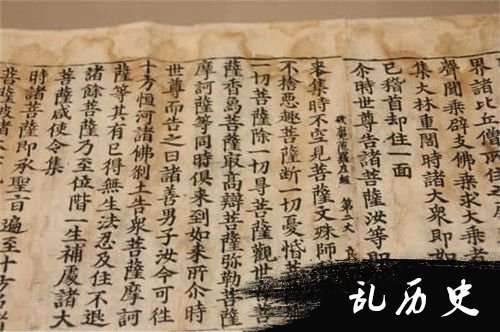 界諸比丘僧
聲聞乘辟支佛乘求大乘者
集大林重閣時諸大衆即如
已稽首却住一面
尒時世尊告諸菩薩汝等即
第二
来集時不空見菩薩文殊師
不捨惡趣菩薩斷一切憂惛菩
一切菩薩除一切盖菩薩觀世音菩
薩香烏菩薩冣高辯菩薩弥勒菩薩
摩訶薩等同時俱来到如来所尒時
世尊而告之曰諸善男子汝今可往
十方恒河諸佛剎土告衆菩薩摩訶
薩等其有已得無生法忍及住不退
諸餘菩薩乃至位階一生補處諸大
菩薩咸使令集
時諸菩薩即承聖旨遍至十方
菩薩
乱历史